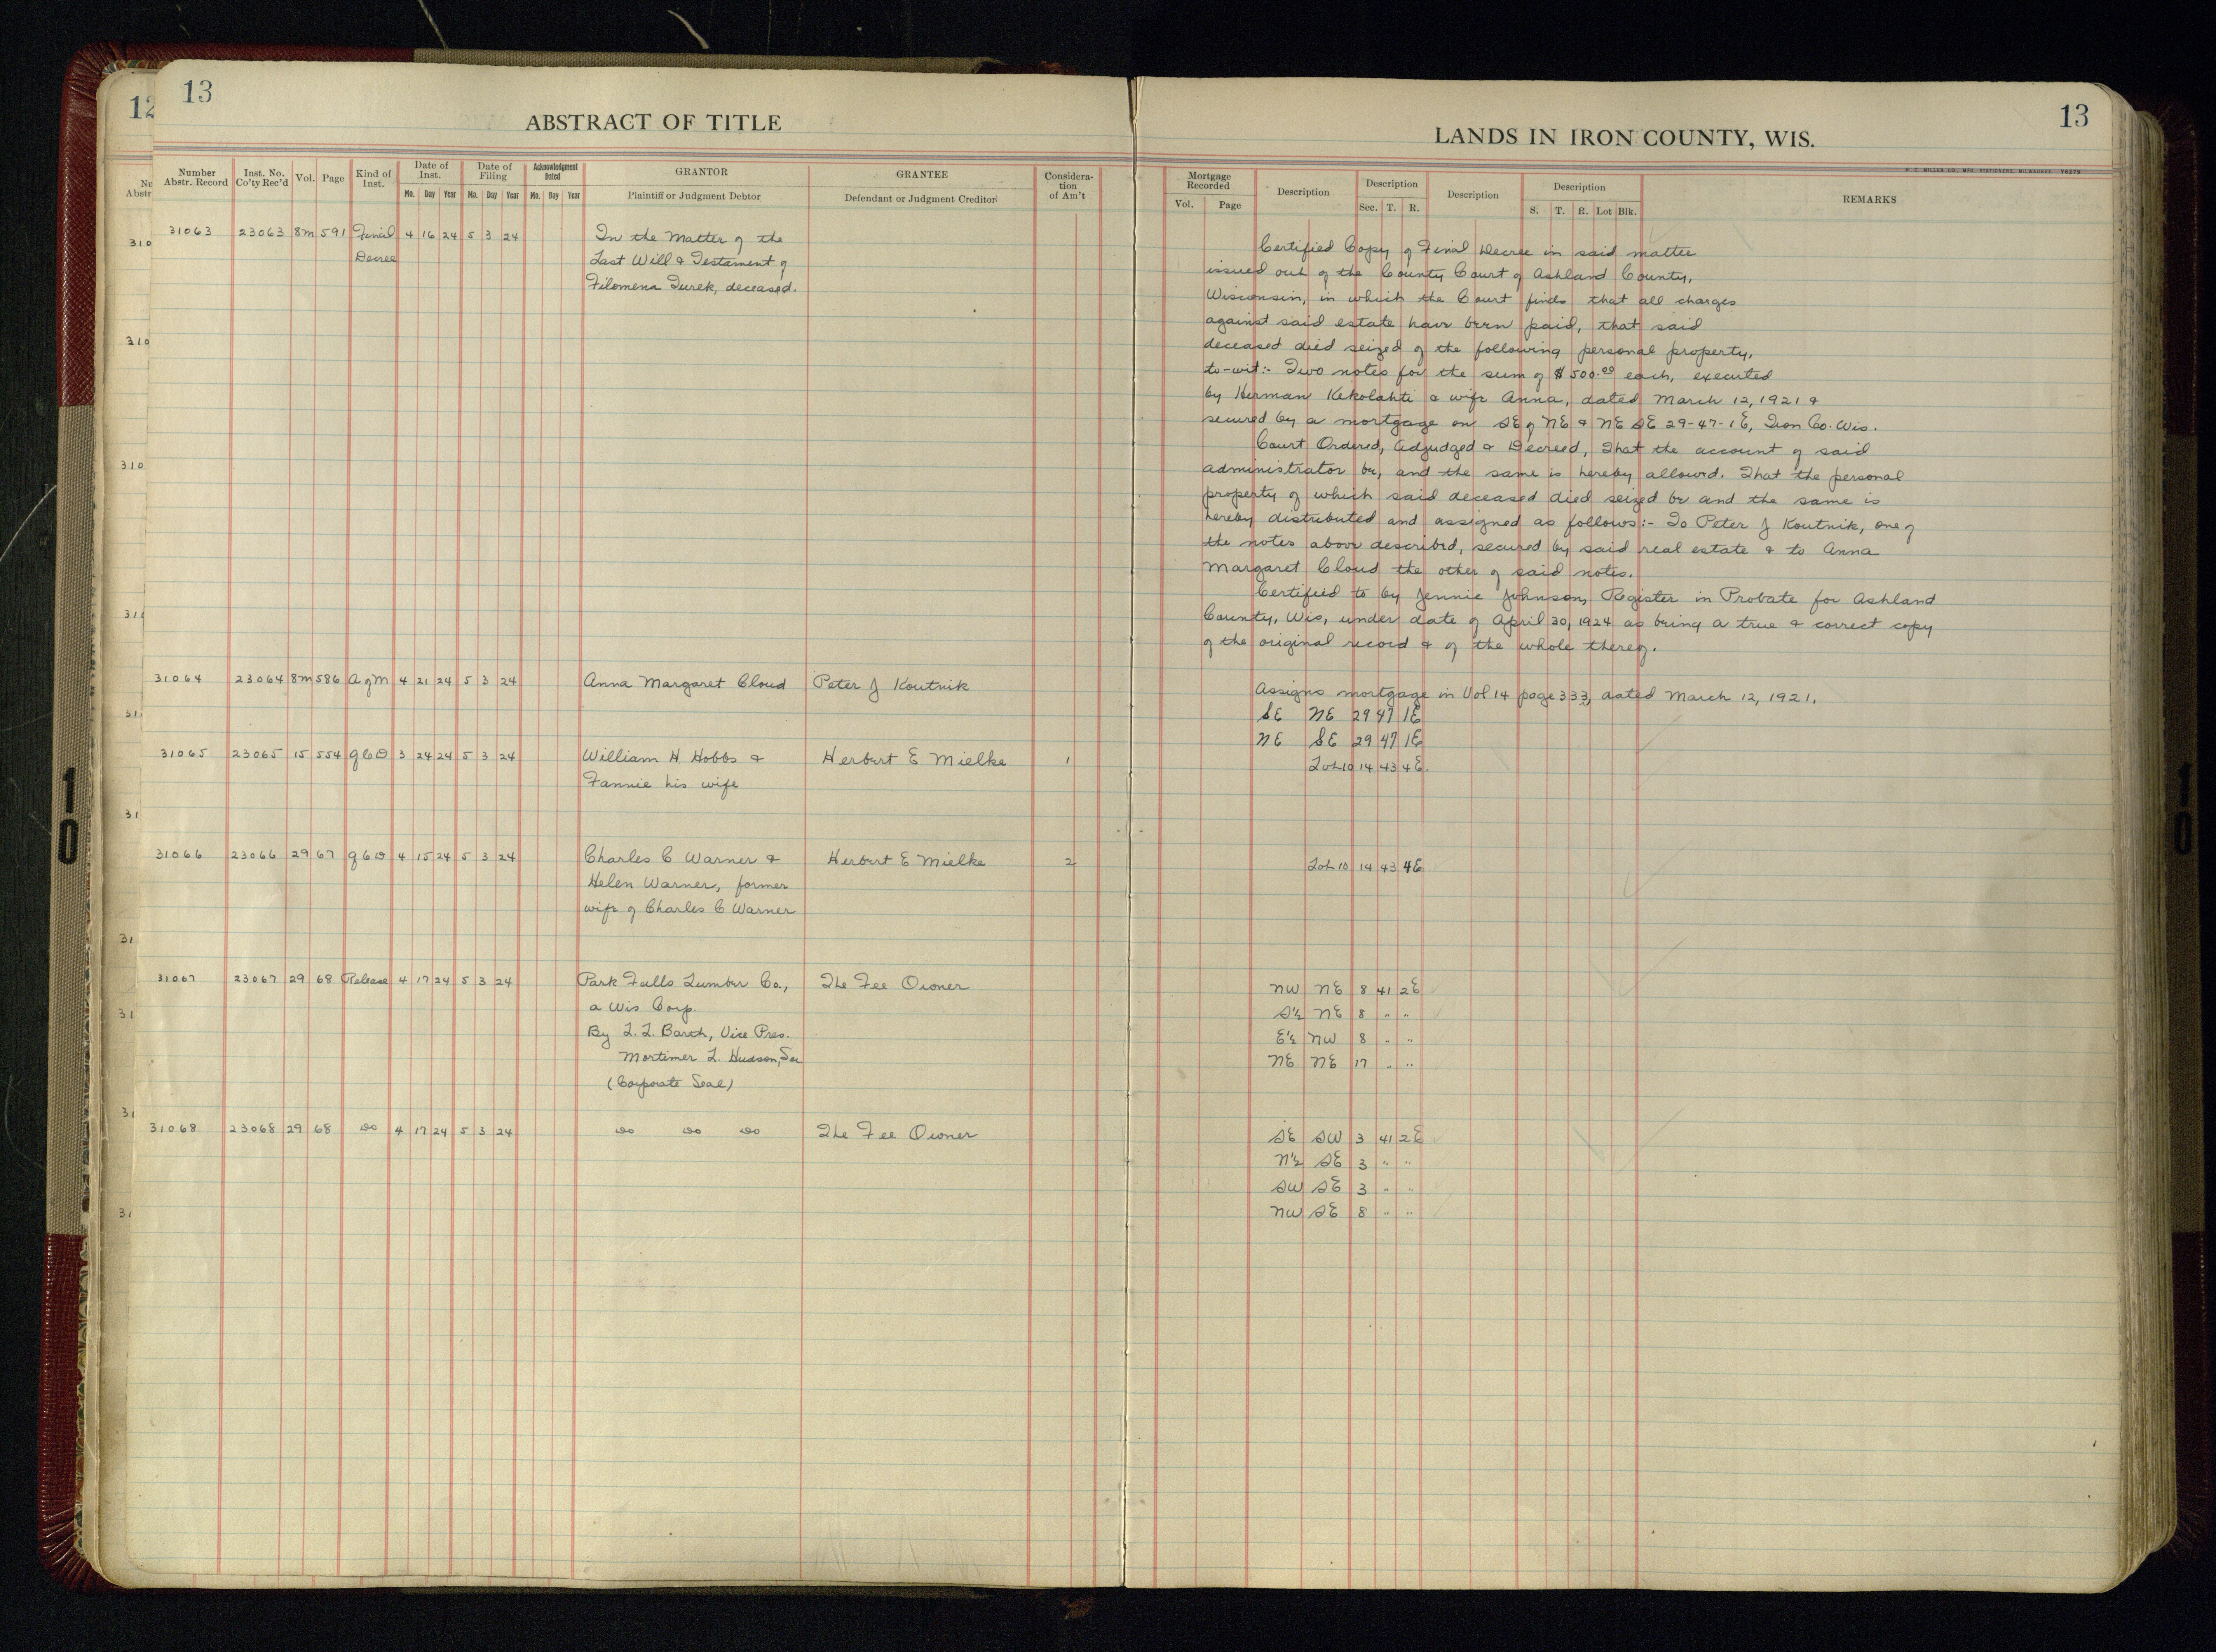 12
13
ABSTRACT OF TITLE
Number Abstr. Record
Inst. No. Co'ty Rec'd
Vol.
Page
Kind of Inst.
Date of Inst.
Mo. Day Year
Date of Filing
Mo. Day Year
Acknowledgment Dated
Mo. Day Year
GRANTOR
Plaintiff or Judgment Debtor
GRANTEE
Defendant or Judgment Creditor
Considera-
tion
of Am't
31063 23063 8m 591 Final 4 16 24 5 3 24 In the Matter of the
Decree Last Will & Testament of
Filomena Turek, deceased.
31064 23064 8m 586 A of M 4 21 24 5 3 24 Anna Margaret Cloud Peter J Koutnik
31065 23065 15 554 QCD 3 24 24 5 3 24 William H Hobbs & Herbert E Mielke 1
Fannie his wife
31066 23066 29 67 QCD 4 15 24 5 3 24 Charles C Warner & Herbert E Mielke 2
Helen Warner, former
wife of Charles C Warner
31067 23067 29 68 Release 4 17 24 5 3 24 Park Falls Lumber Co., The Fee Owner
a Wis Corp.
By L. L. Barth, Vice Pres.
Mortimer L. Hudson, Sec
(Corporate Seal)
31068 23068 29 68 do 4 17 24 5 3 24 do do do The Fee Owner
10
13
LANDS IN IRON COUNTY, WIS.
H. C. MILLER CO., MFG. STATIONERS, MILWAUKEE
Mortgage Recorded
Vol. Page
Description
Description
Sec. T. R.
Description
Description
S. T. R. Lot Blk.
REMARKS
Certified Copy of Final Decree in said matter
issued out of the County Court of Ashland County,
Wisconsin, in which the Court finds that all charges
against said estate have been paid, that said
deceased died seized of the following personal property,
to-wit:- Two notes for the sum of $500.00 each, executed
by Herman Kekolahti & wife Anna, dated March 12, 1921 &
secured by a mortgage on SE of NE & NE SE 29-47-1E, Iron Co. Wis.
Court Ordered, Adjudged & Decreed, That the account of said
administrator be, and the same is hereby allowed. That the personal
property of which said deceased died seized be and the same is
hereby distributed and assigned as follows:- To Peter J Koutnik, one of
the notes above described, secured by said real estate & to Anna
Margaret Cloud the other of said notes.
Certified to by Jennie Johnson, Register in Probate for Ashland
County, Wis, under date of April 30, 1924 as being a true & correct copy
of the original record & of the whole thereof.
Assigns mortgage in Vol 14 page 333, dated March 12, 1921.
SE NE 29 47 1E
NE SE 29 47 1E
Lot 10 14 43 4E.
Lot 10 14 43 4E
NW NE 8 41 2E
S½ NE 8 " "
E½ NW 8 " "
NE NE 17 " "
SE SW 3 41 2E
N½ SE 3 " "
SW SE 3 " "
NW SE 8 " "
10